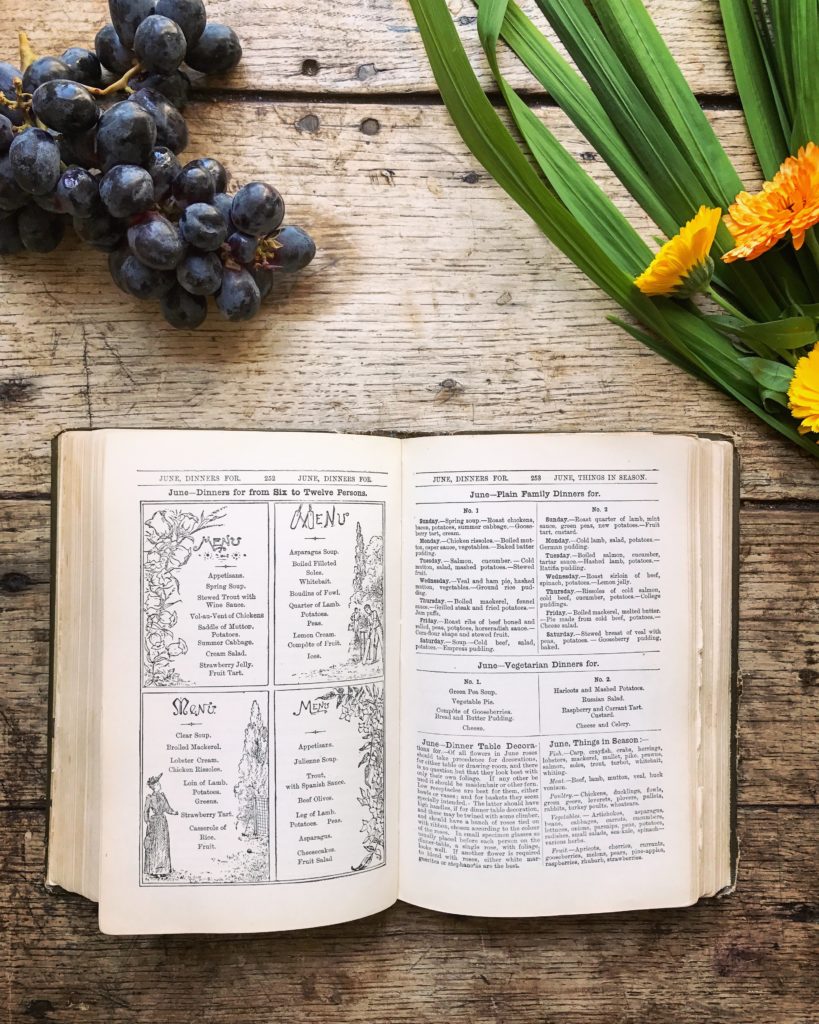 JUNE, DINNERS FOR. 252 JUNE, DINNERS FOR.
June—Dinners for from Six to Twelve Persons.
MENU
Appetisans.
Spring Soup.
Stewed Trout with
Wine Sauce.
Vol-au-Vent of Chickens
Saddle of Mutton.
Potatoes.
Summer Cabbage.
Cream Salad.
Strawberry Jelly.
Fruit Tart.
MENU
Asparagus Soup.
Boiled Filleted
Soles.
Whitebait.
Boudins of Fowl.
Quarter of Lamb.
Potatoes.
Peas.
Lemon Cream.
Compôte of Fruit.
Ices.
Menu
Clear Soup.
Broiled Mackerel.
Lobster Cream.
Chicken Rissoles.
Loin of Lamb.
Potatoes.
Greens.
Strawberry Tart.
Casserole of
Rice.
Fruit.
MENU
Appetisans.
Julienne Soup.
Trout,
with Spanish Sauce.
Beef Olives.
Leg of Lamb.
Potatoes. Peas.
Asparagus.
Cheesecakes.
Fruit Salad
JUNE, DINNERS FOR. 253 JUNE, THINGS IN SEASON.
June—Plain Family Dinners for.
No. 1
Sunday.—Spring soup.—Roast chickens,
bacon, potatoes, summer cabbage.—Goose-
berry tart, cream.
Monday.—Chicken rissoles.—Boiled mut-
ton, caper sauce, vegetables.—Baked batter
pudding.
Tuesday.—Salmon, cucumber.—Cold
mutton, salad, mashed potatoes.—Stewed
fruit.
Wednesday.—Veal and ham pie, hashed
mutton, vegetables.—Ground rice pud-
ding.
Thursday.—Boiled mackerel, fennel
sauce.—Grilled steak and fried potatoes.—
Jam puffs.
Friday.—Roast ribs of beef boned and
rolled, peas, potatoes, horseradish sauce.—
Corn-flour shape and stewed fruit.
Saturday.—Soup.—Cold beef, salad,
potatoes.—Empress pudding.
No. 2
Sunday.—Roast quarter of lamb, mint
sauce, green peas, new potatoes.—Fruit
tart, custard.
Monday.—Cold lamb, salad, potatoes.—
German pudding.
Tuesday.—Boiled salmon, cucumber,
tartar sauce.—Hashed lamb, potatoes.—
Ratifia pudding.
Wednesday.—Roast sirloin of beef,
spinach, potatoes.—Lemon jelly.
Thursday.—Rissoles of cold salmon,
cold beef, cucumber, potatoes.—College
puddings.
Friday.—Boiled mackerel, melted butter.
—Pie made from cold beef, potatoes.—
Cheese salad.
Saturday.—Stewed breast of veal with
peas, potatoes.—Gooseberry pudding,
baked.
June—Vegetarian Dinners for.
No. 1.
Green Pea Soup.
Vegetable Pie.
Compôte of Gooseberries.
Bread and Butter Pudding.
Cheese.
No. 2.
Haricots and Mashed Potatoes.
Russian Salad.
Raspberry and Currant Tart.
Custard.
Cheese and Celery.
June—Dinner Table Decora-
tions for.—Of all flowers in June roses
should take precedence for decorations,
for either table or drawing-room, and there
is no question but that they look best with
only their own foliage. If any other be
used it should be maidenhair or other fern.
Low receptacles are best for them, either
bowls or vases; and for baskets they seem
specially intended. The latter should have
handles, if for dinner table decoration,
and these may be twined with some climber,
and should have a bunch of roses tied on
with ribbon, chosen according to the colour
of the roses. In small specimen glasses as
usually placed before each person on the
dinner-table, a single rose, with foliage,
looks well. If another flower is required
to blend with roses, either white mar-
guerites or stephanotis are the best.
June, Things in Season:—
Fish.—Carp, crayfish, crabs, herrings,
lobsters, mackerel, mullet, pike, prawns,
salmon, soles, trout, turbot, whitebait,
whiting.
Meat.—Beef, lamb, mutton, veal, buck
venison.
Poultry.—Chickens, ducklings, fowls,
green geese, leverets, plovers, pullets,
rabbits, turkey poults, wheatears.
Vegetables.—Artichokes, asparagus,
beans, cabbages, carrots, cucumbers,
lettuces, onions, parsnips, peas, potatoes,
radishes, small salads, sea-kale, spinach—
various herbs.
Fruit.—Apricots, cherries, currants,
gooseberries, melons, pears, pine-apples,
raspberries, rhubarb, strawberries.